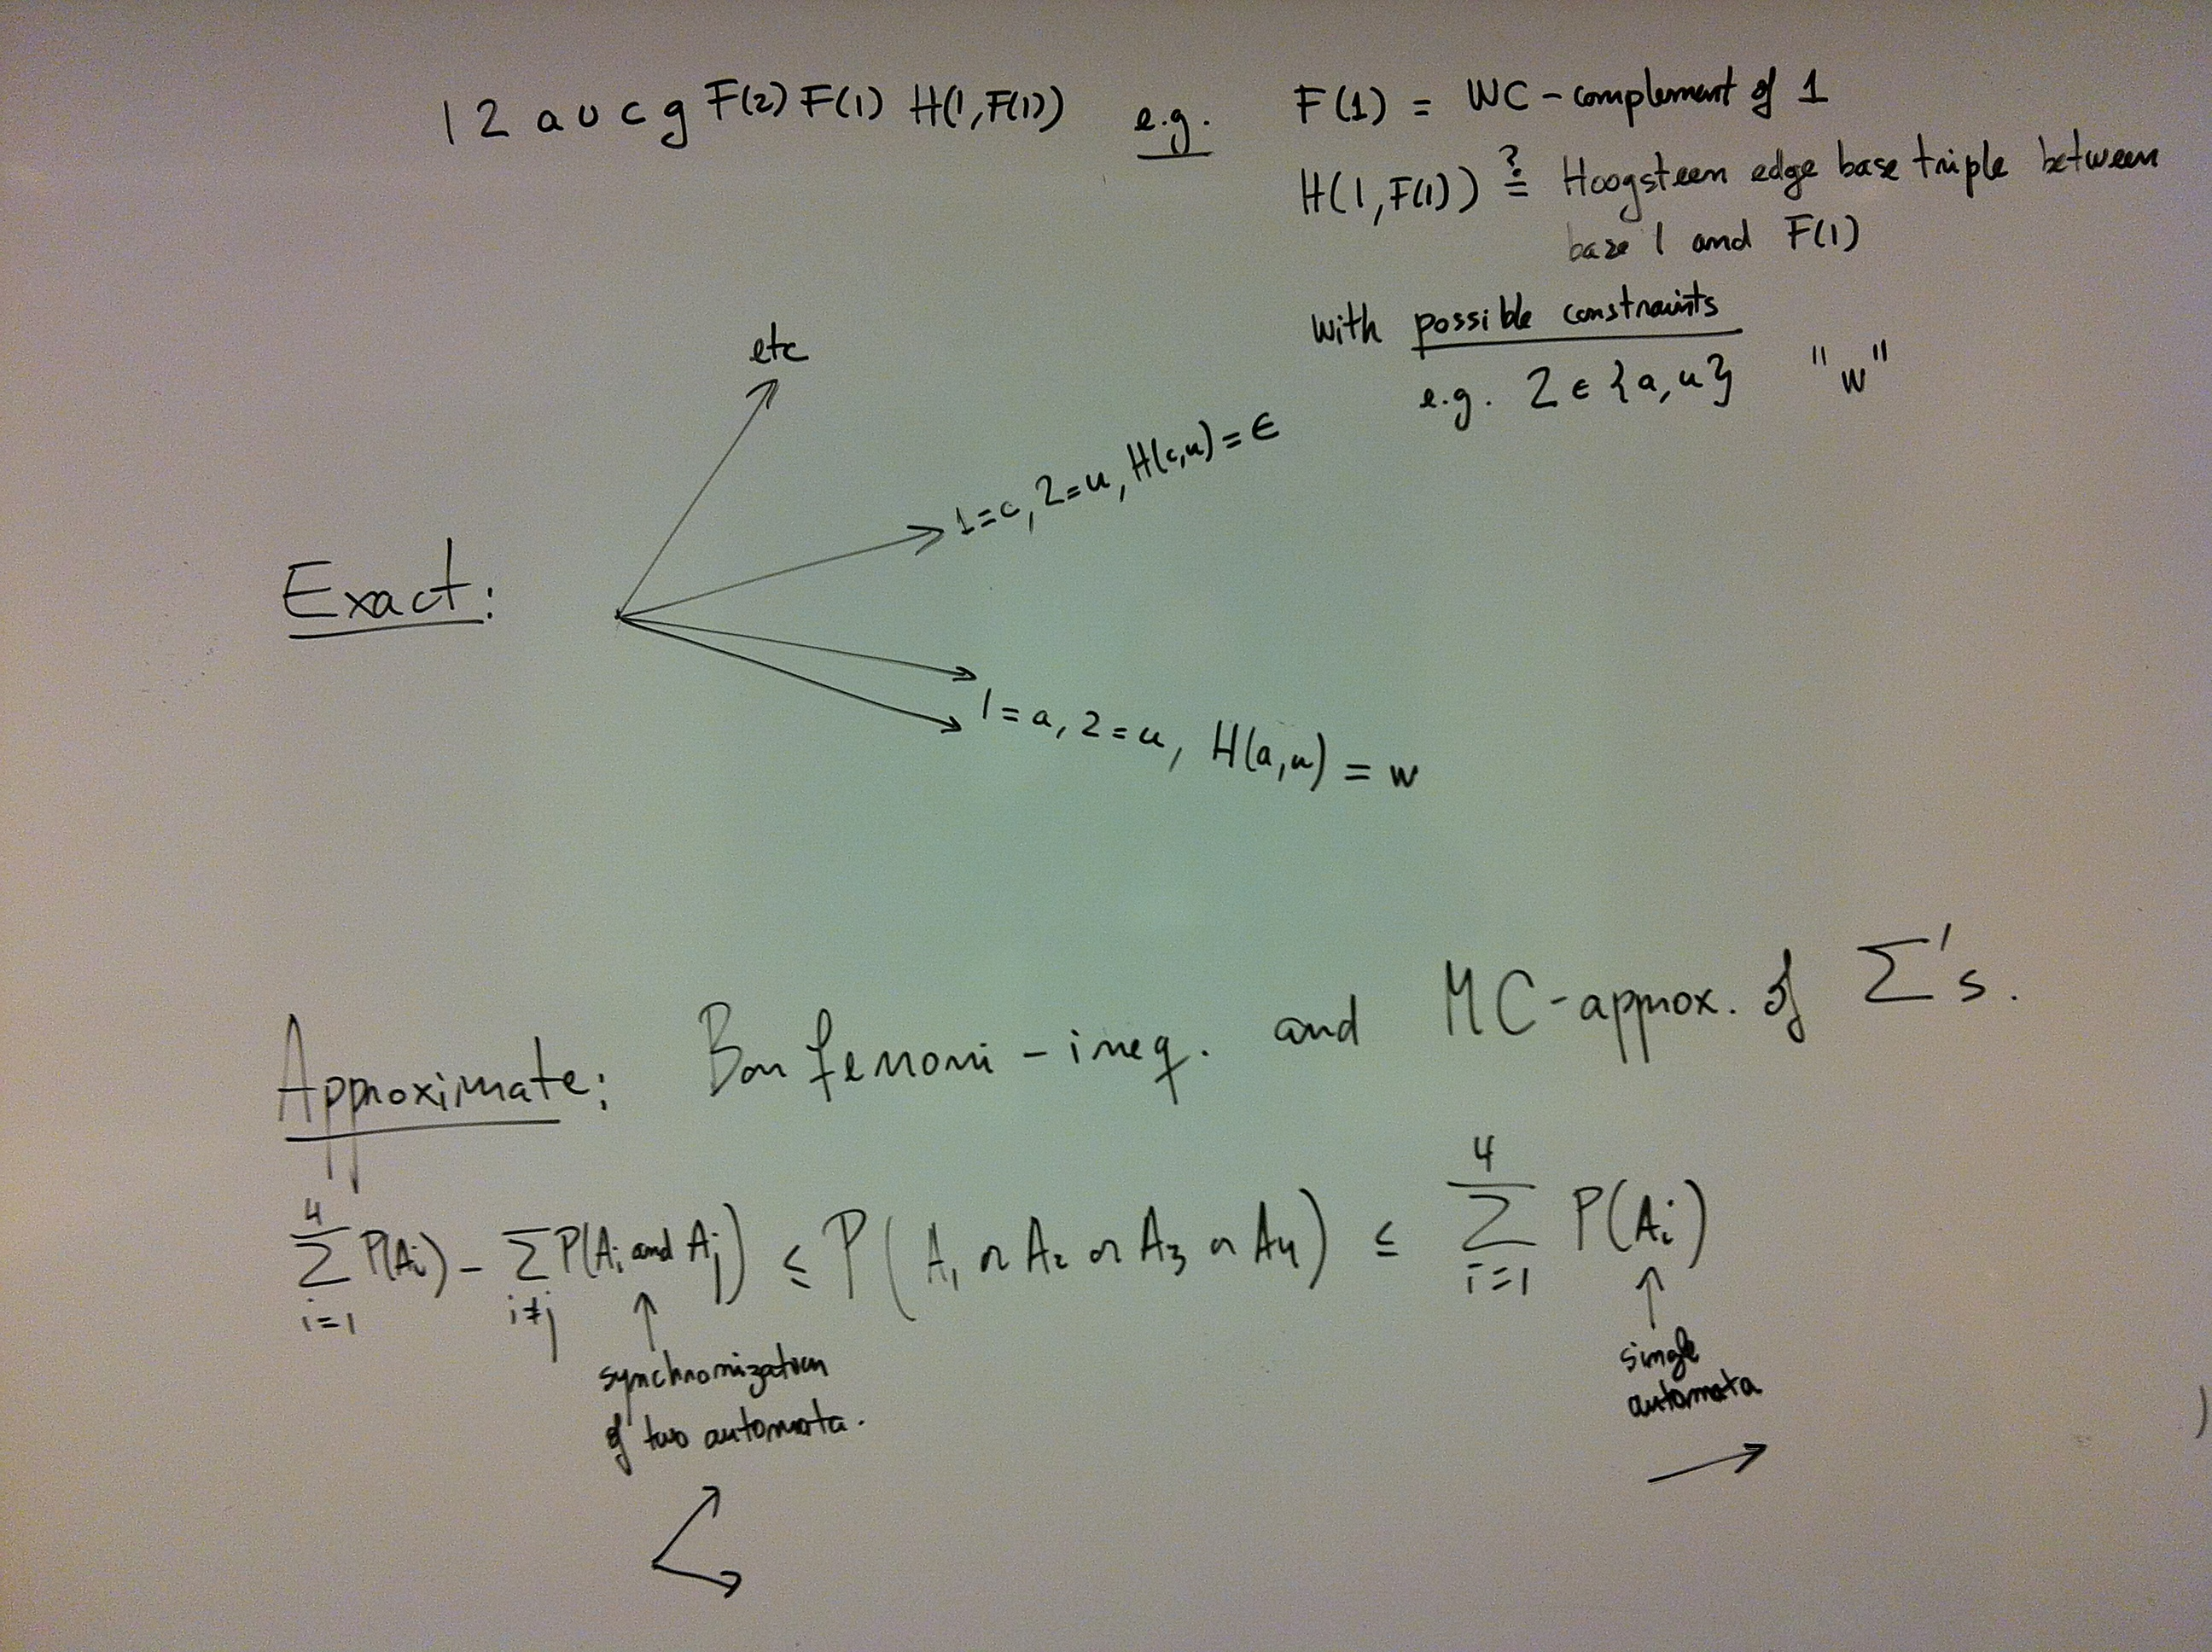 1 2 a u c g F(2) F(1) H(1,F(1)) e.g. F(1) = WC-complement of 1
H(1,F(1)) ≟ Hoogsteen edge base triple between
base 1 and F(1)
with possible constraints
e.g. 2 ∈ {a,u} "w"
etc
1=c, 2=u, H(c,u) = ϵ
Exact:
1=a, 2=u, H(a,u) = w
Approximate: Bonferroni-ineq. and MC-approx. of Σ's.
∑_{i=1}^{4} P(Ai) - ∑_{i≠j} P(Ai and Aj) ≤ P(A1 or A2 or A3 or A4) ≤ ∑_{i=1}^{4} P(Ai)
synchronization
of two automata.
single
automata